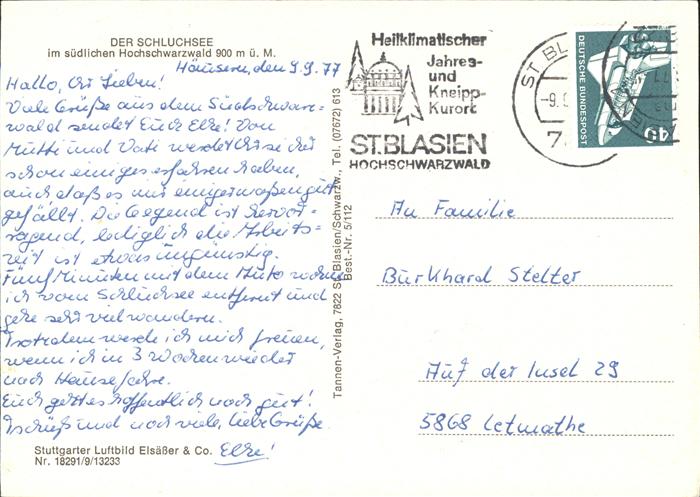 DER SCHLUCHSEE
im südlichen Hochschwarzwald 900 m ü. M.
Häusern, den 9.9.77
Hallo, Ihr Lieben!
Viele Grüße aus dem Südschwarz-
wald sendet Euch Elke! Von
Mutti und Vati werdet Ihr sicher
schon einiges erfahren haben,
auch daß es mir einigermaßen gut
gefällt. Die Gegend ist hervor-
ragend, lediglich die Arbeits-
zeit ist etwas ungünstig.
Fünf Minuten mit dem Auto wohne
ich vom Schluchsee entfernt und
gehe sehr viel wandern.
Trotzdem werde ich mich freuen,
wenn ich in 3 Wochen wieder
nach Hause fahre.
Euch geht es hoffentlich noch gut!
Tschüß und noch viele, liebe Grüße
Elke!
Stuttgarter Luftbild Elsäßer & Co.
Nr. 18291/9/13233
Tannen-Verlag, 7822 St. Blasien/Schwarzw., Tel. (07672) 613
Best.-Nr. 5/112
Heilklimatischer
Jahres-
und
Kneipp-
Kurort
ST.BLASIEN
HOCHSCHWARZWALD
ST BL
-9.9
7
DEUTSCHE BUNDESPOST
40
An Familie
Burkhard Stelter
Auf der Insel 29
5868 Letmathe